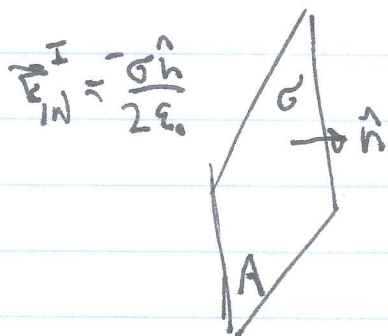 E⃗ᴵ_IN = -σn̂/2ε₀
σ
n̂
A